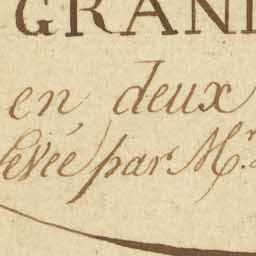 GRAND
en deux
levée par Mr.